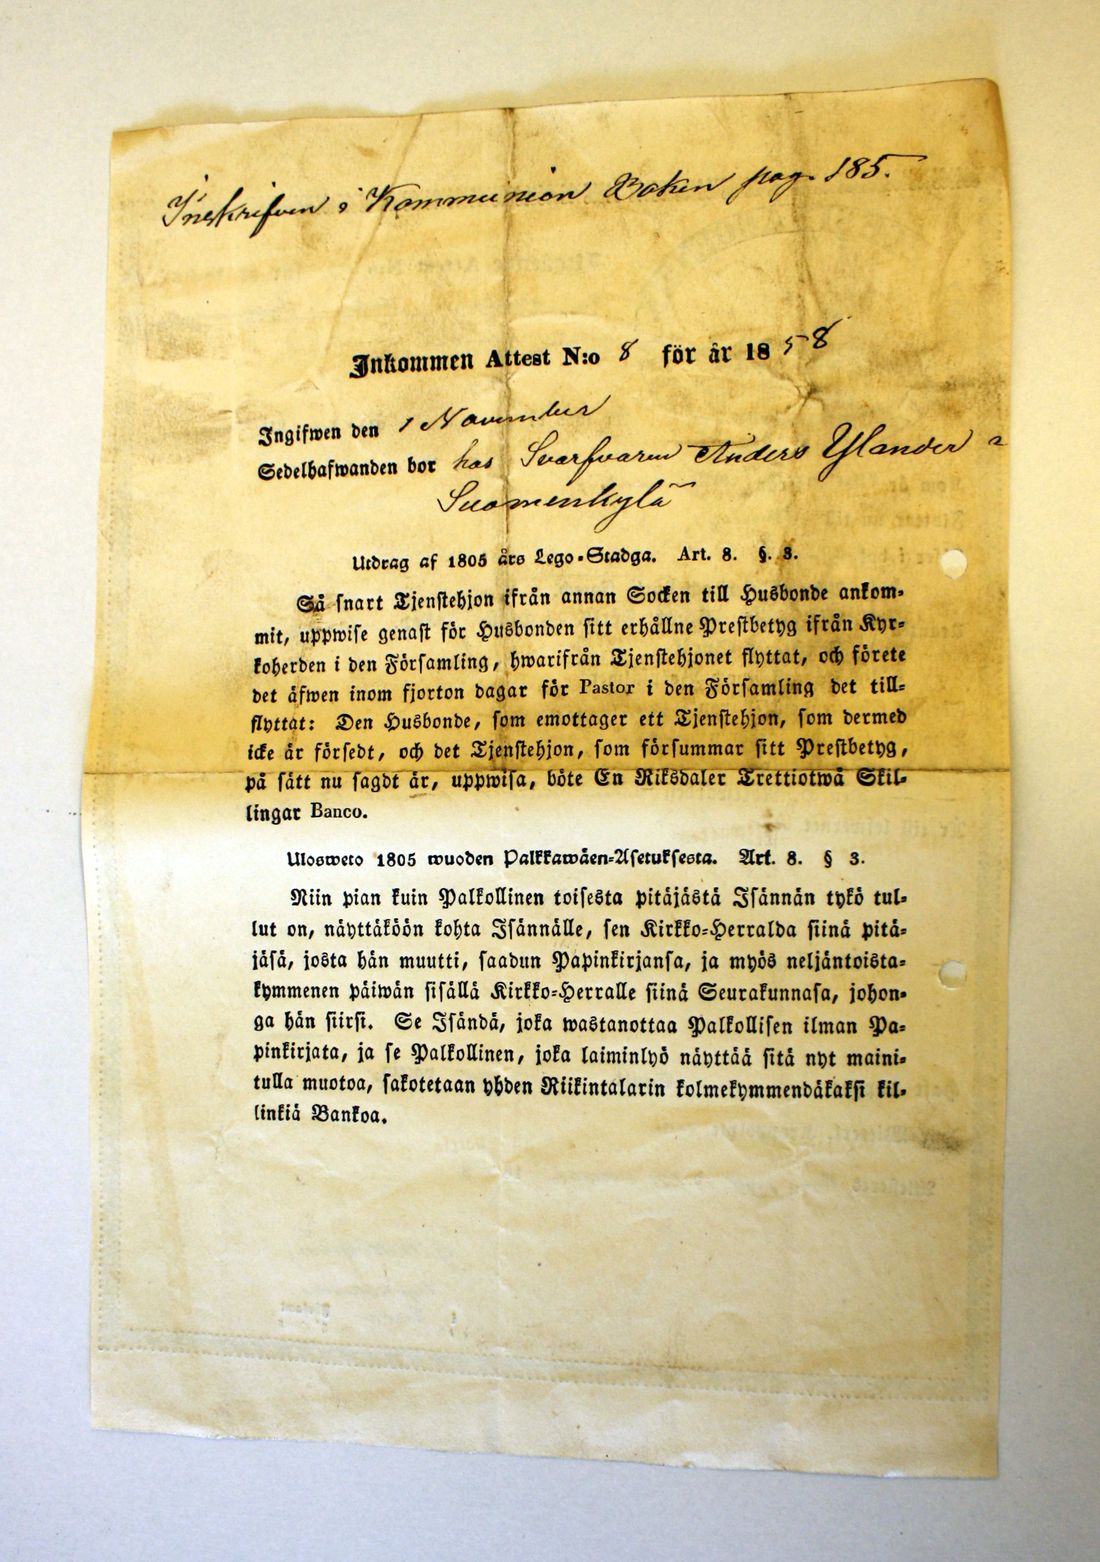 Inskrifven i Kommunion Boken pag. 185.
Inkommen Attest N:o 8 för år 1858
Ingifwen den 1 November
Sedelhafwanden bor hos Svarfvaren Anders Ylander a
Suomenkylä
Utdrag af 1805 års Lego-Stadga. Art. 8. §. 3.
Så snart Tjenstehjon ifrån annan Socken till Husbonde ankom-
mit, uppwise genast för Husbonden sitt erhållne Prestbetyg ifrån Kyr-
koherden i den Församling, hwarifrån Tjenstehjonet flyttat, och förete
det äfwen inom fjorton dagar för Pastor i den Församling det till-
flyttat: Den Husbonde, som emottager ett Tjenstehjon, som dermed
icke är försedt, och det Tjenstehjon, som försummar sitt Prestbetyg,
på sätt nu sagdt är, uppwisa, böte En Riksdaler Trettiotwå Skil-
lingar Banco.
Ulosweto 1805 wuoden Palkkawäen-Asetuksesta. Art. 8. § 3.
Niin pian kuin Palkollinen toisesta pitäjästä Isännän tykö tul-
lut on, näyttäköön kohta Isännälle, sen Kirkko-Herralda siinä pitä-
jäsä, josta hän muutti, saadun Papinkirjansa, ja myös neljäntoista-
kymmenen päiwän sisällä Kirkko-Herralle siinä Seurakunnasa, johon-
ga hän siirsi. Se Isändä, joka wastanottaa Palkollisen ilman Pa-
pinkirjata, ja se Palkollinen, joka laiminlyö näyttää sitä nyt maini-
tulla muotoa, sakotetaan yhden Riikintalarin kolmekymmendäkaksi kil-
linkiä Bankoa.